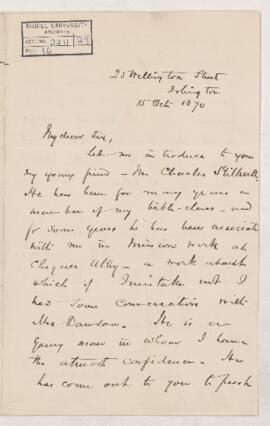 McGILL UNIVERSITY
ARCHIVES
ACC. NO. 2211
REF. 16
29
25 Wellington Street
Islington
15 Oct 1870
My dear Sir,
Let me introduce to you
my young friend – Mr Charles Stilwell.
He has been for many years a
member of my bible-class – and
for some years he has been associate
with me in Mission work at
Chequer Alley – a work about
which if I mistake not I
had some conversation with
Mrs Dawson. He is a
young man in whom I have
the utmost confidence. He
has come out to you to push